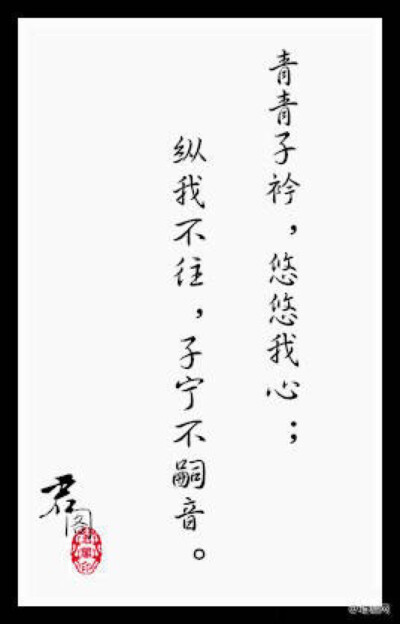 青青子衿，悠悠我心；
纵我不往，子宁不嗣音。
君阁